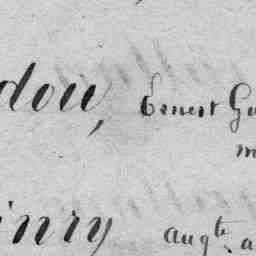 dou, Ernest Gu
m
inry augte. a